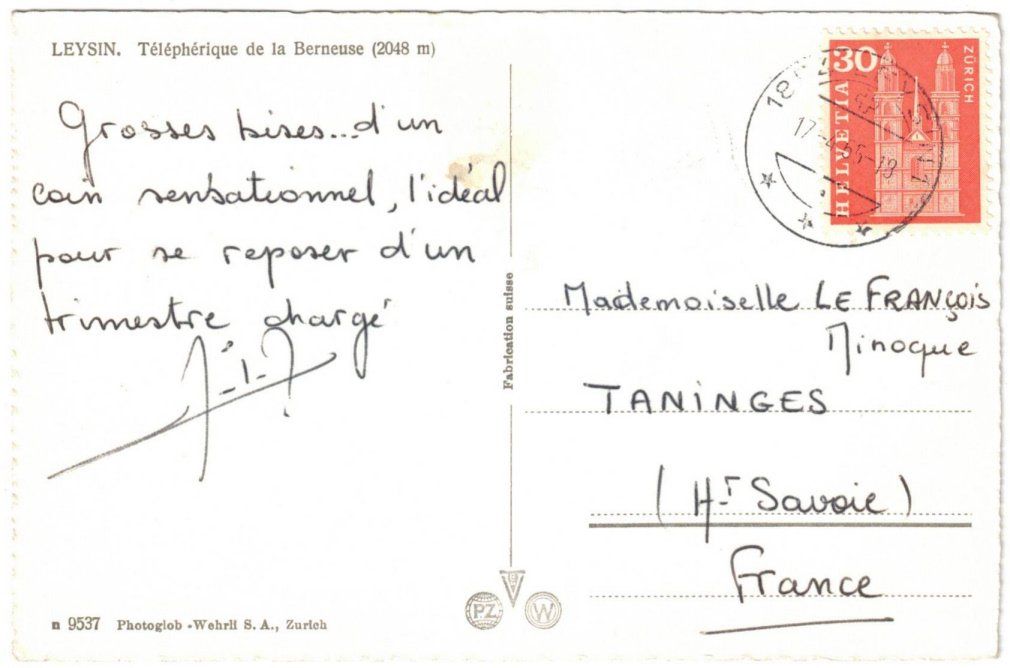 LEYSIN. Téléphérique de la Berneuse (2048 m)
Grosses bises...d'un
coin sensationnel, l'idéal
pour se reposer d'un
trimestre chargé
Fabrication suisse
n 9537 Photoglob-Wehrli S.A., Zurich
P.Z.
W
30
HELVETIA
ZÜRICH
Mademoiselle LE FRANÇOIS
Minoque
TANINGES
(Hᵀ Savoie)
France